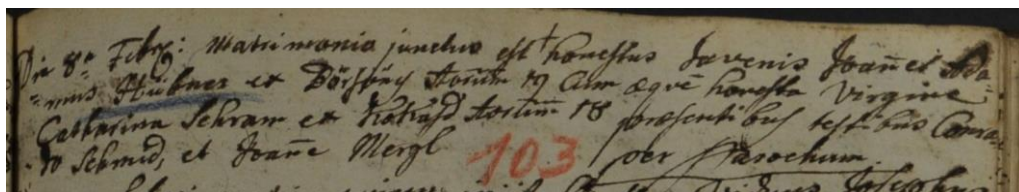 Die 8a Febr: Matrimonio junctus est honestus Juvenis Joañes Ada-
-mus Hübner ex Börsöny Annorum 19 Cum æque honesta Virgine
Catharina Schram ex Kakasd Annorum 18 præsentibus testibus Conra-
-do Schmid, et Joañe Mergl 103 per Parochum